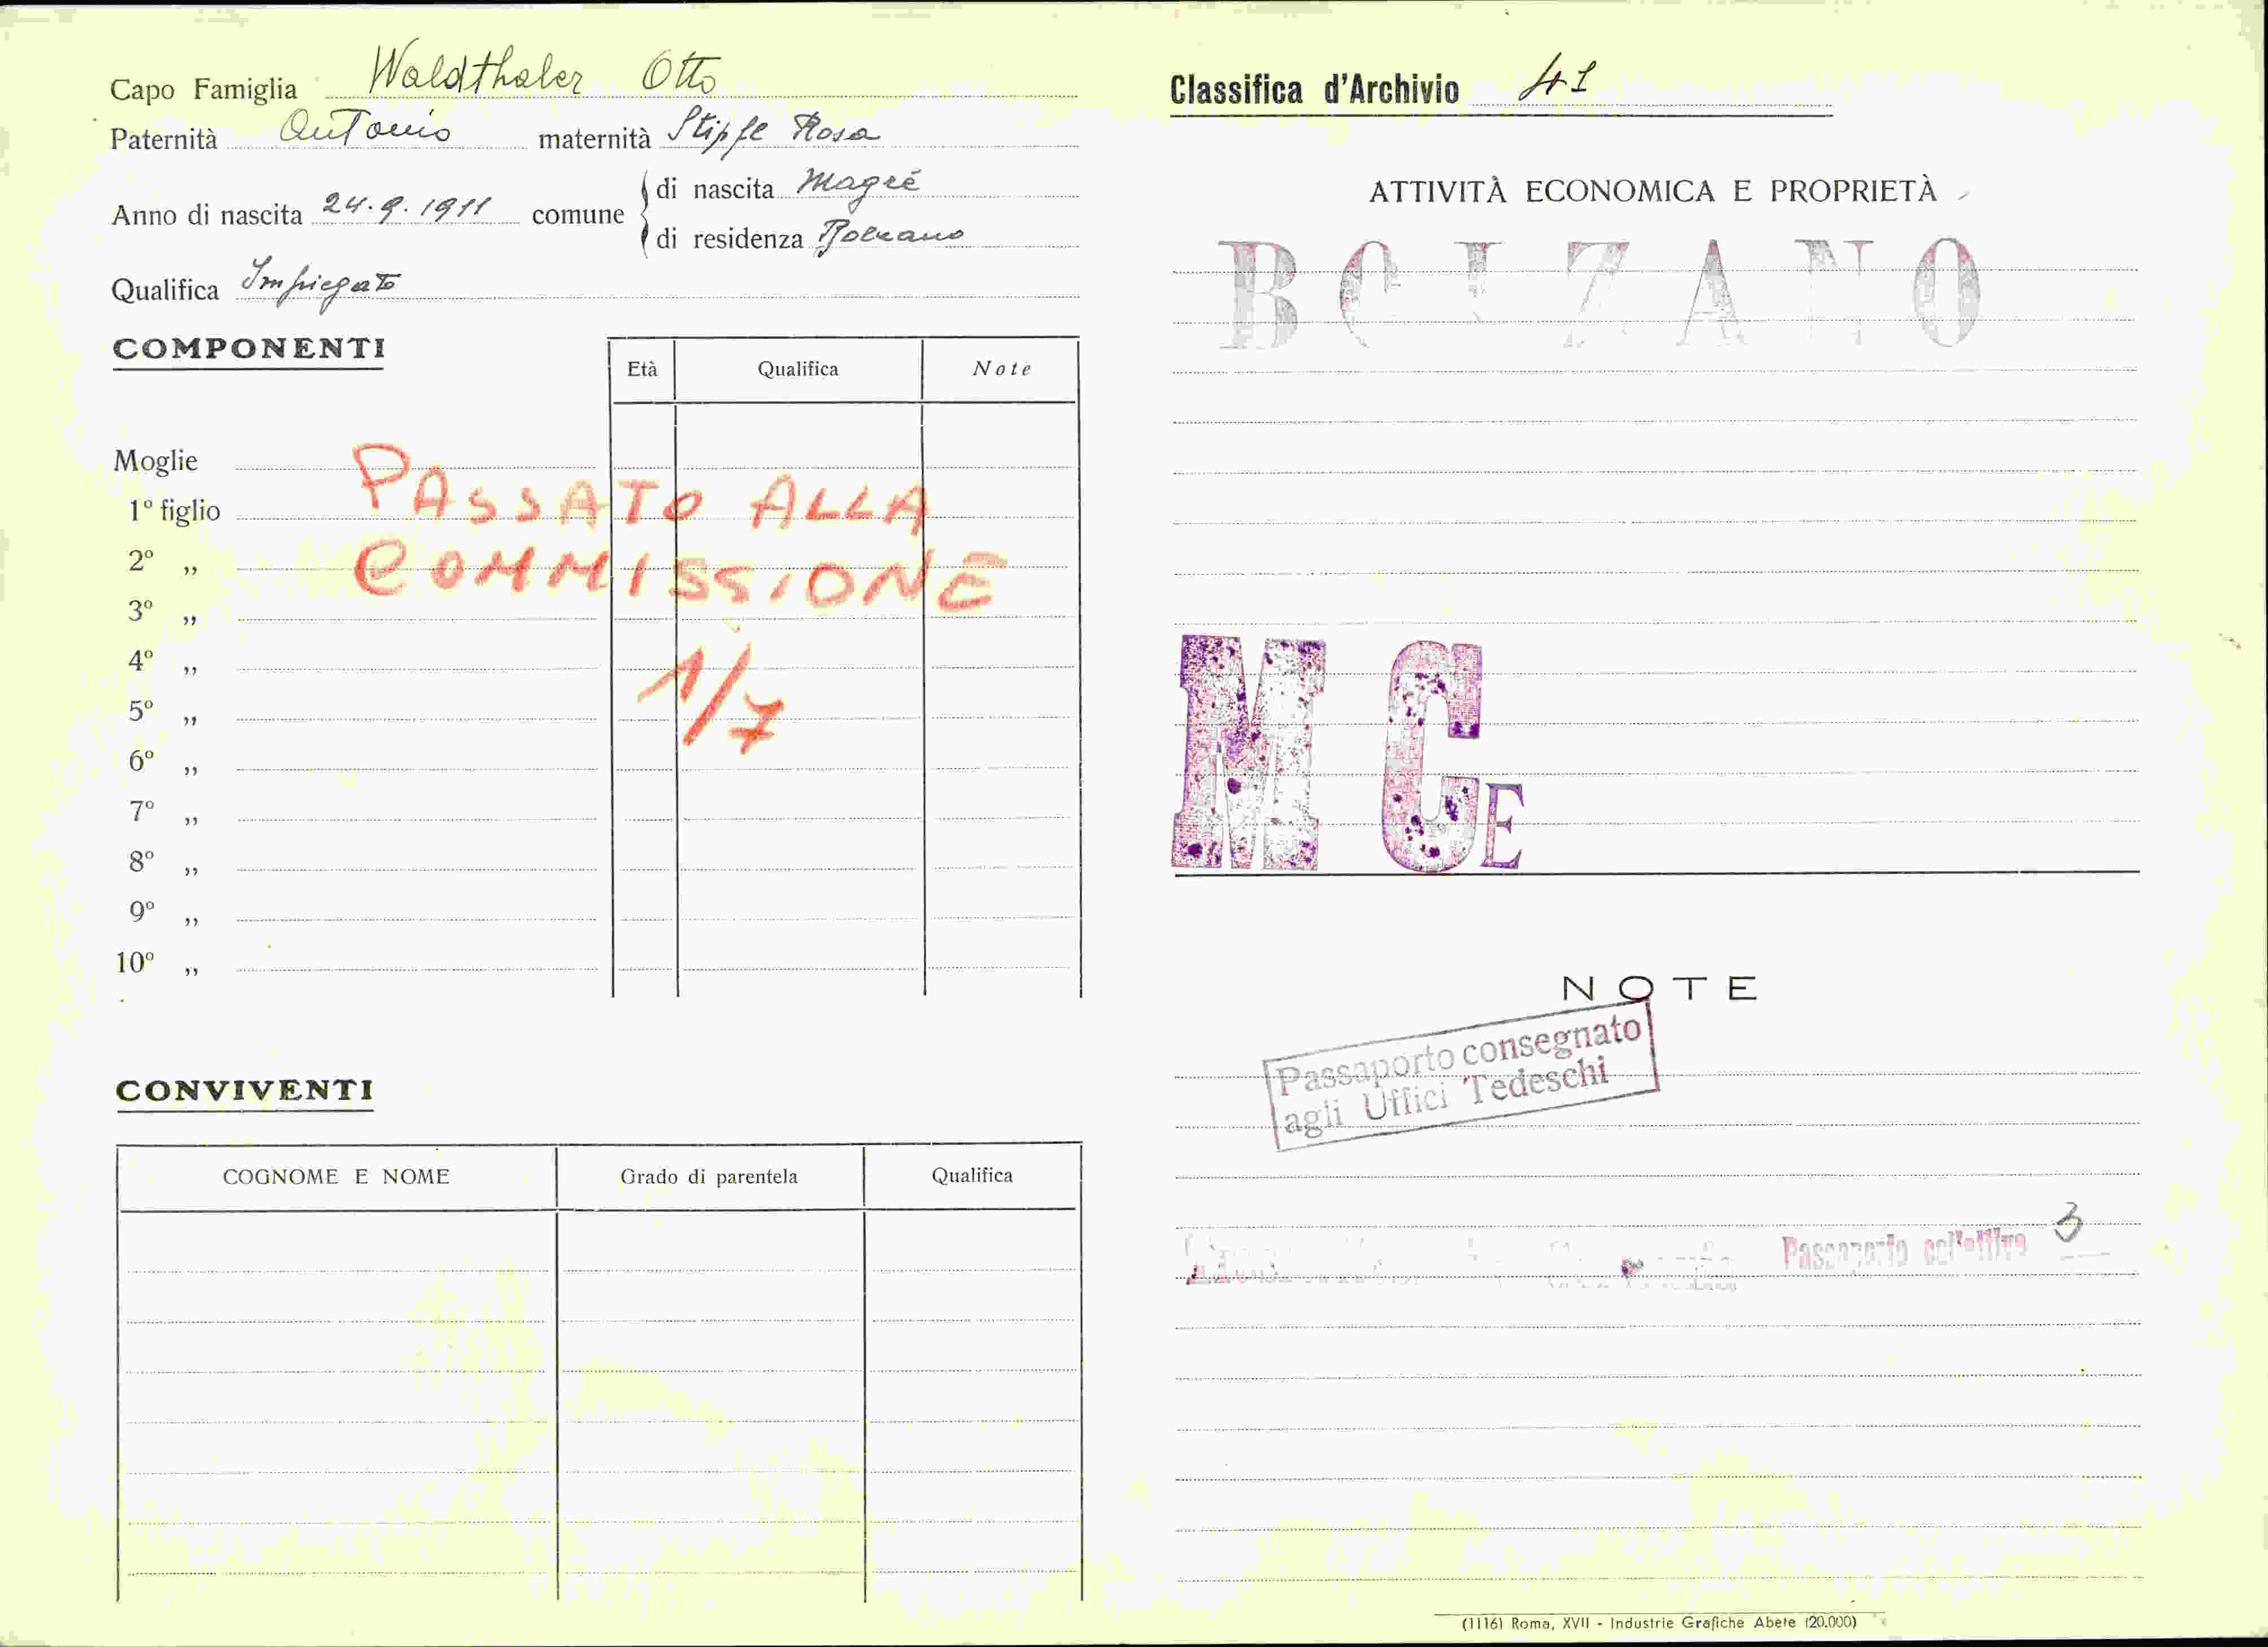 Capo Famiglia Waldthaler Otto
Paternità Antonio maternità Stipfe Rosa
Anno di nascita 24.9.1911 comune
di nascita Magré
di residenza Bolzano
Qualifica Impiegato
COMPONENTI
Età Qualifica Note
Moglie
1º figlio
2º „
3º „
4º „
5º „
6º „
7º „
8º „
9º „
10º „
PASSATO ALLA
COMMISSIONE
1/7
CONVIVENTI
COGNOME E NOME Grado di parentela Qualifica
Classifica d'Archivio 41
ATTIVITÀ ECONOMICA E PROPRIETÀ
BOLZANO
M C E
NOTE
Passaporto consegnato
agli Uffici Tedeschi
Passaporto collettivo 3
(1116) Roma, XVII - Industrie Grafiche Abete (20.000)